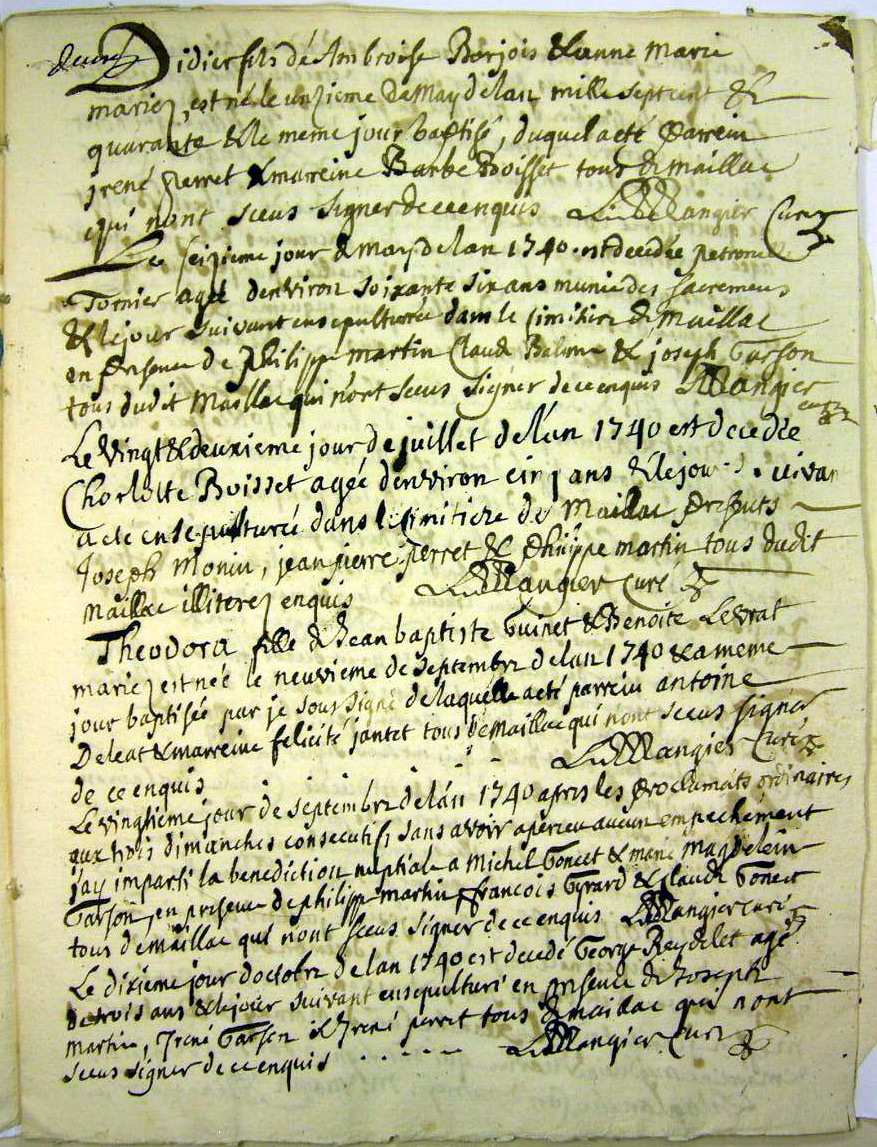 Didier fils dé Ambroise Borjois & anne Marie
mariez, est né le unzieme de May de lan mille sept cent &
quarante & le meme jour baptisé, duquel a eté parrein
jrené perret & marreine Barbe Boisset tous de maillac
qui n'ont sceus signer de ce enquis Mangier Curé
Le seizieme jour de may de lan 1740 est decedée petronille
Tornier agée denviron soixante six ans munie des sacremens
& le jour suivant ensepulturée dans le cimitiere de maillac
en presence de philippe martin Claude Balme & joseph Garson
tous dudit Maillac qui n'ont sceus signer de ce enquis Mangier
curé
Le vingt & deuxieme jour de juillet de l'an 1740 est decedée
Charlotte Boisset agée denviron cinq ans & le jour suivan
a eté ensepulturée dans le cimitiere de Maillac presents
Joseph Monin, jean pierre perret & philippe martin tous dudit
maillac illiterez enquis Mangier curé
Theodora fille de Jean baptiste Guinet & Benoite Levrat
mariez est née le neuvieme de septembre de lan 1740 & a meme
jour baptisée par je sous signé de laquelle a eté parrein antoine
Deleat & marreine felicité jantet tous de maillac qui n'ont sceus signer
de ce enquis Mangier Curé
Le vingtieme jour de septembre de lan 1740 apres les proclamats ordinaires
aux trois dimanches consecutifs sans avoir aperceu aucun empechement
j'ay imparti la benediction nuptiale a Michel Gonect & marie Magdeleine
Garson, en presence de philippe martin francois Gyrard & Claude Gonect
tous de maillac qui n'ont sceus signer de ce enquis Mangier curé
Le dixieme jour d'octobre de lan 1740 est decedé George Reydelet agé
de trois ans & le jour suivant ensepulturé en presence de Joseph
martin, Jrené Garson & Jrené perret tous de maillac qui n'ont
sceus signer de ce enquis Mangier Curé